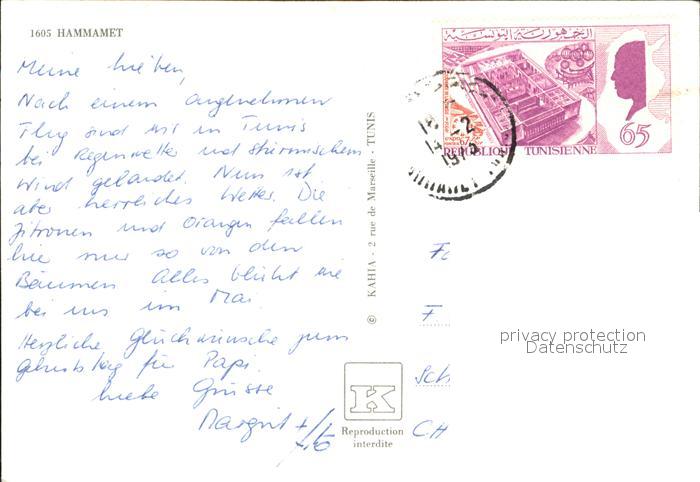 1605 HAMMAMET
Meine Lieben,
Nach einem angenehmen
Flug sind wir in Tunis
bei Regenwetter und stürmischem
Wind gelandet. Nun ist
aber herrliches Wetter. Die
Zitronen und Orangen fallen
hier nur so von den
Bäumen. Alles blüht wie
bei uns im Mai.
Herzliche Glückwünsche zum
Geburtstag für Papi.
Liebe Grüsse
Margrit
© KAHIA - 2 rue de Marseille - TUNIS
K
Reproduction
interdite
الجمهورية التونسية
65
REPUBLIQUE TUNISIENNE
F
Sch
CH
privacy protection
Datenschutz